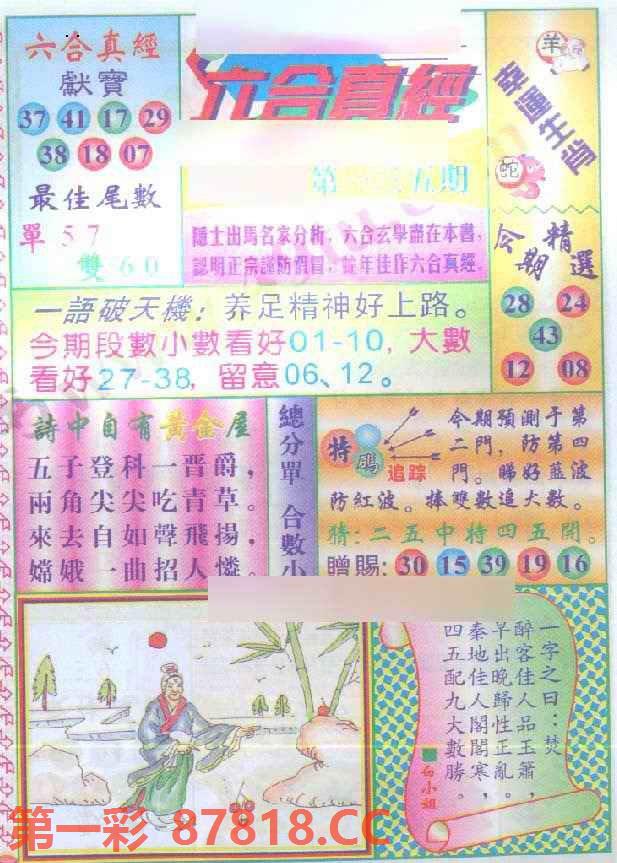 六合真經
獻寶
37 41 17 29
38 18 07
最佳尾數
單57
雙60
六合真經
第 五期
隱士出馬名家分析，六合玄學盡在本書，
認明正宗謹防假冒，蛇年佳作六合真經。
羊
幸運生肖
蛇
今期精選
28 24
43
12 08
一語破天機：養足精神好上路。
今期段數小數看好01-10，大數
看好27-38，留意06、12。
詩中自有黃金屋
五子登科一晋爵，
兩角尖尖吃青草。
來去自如聲飛揚，
嫦娥一曲招人憐。
總分單 合數小
特碼
追踪
今期預測于第
二門，防第四
門。睇好藍波
防紅波。捧雙數追大數。
猜：二五中特四五開。
贈賜：30 15 39 19 16
一字之曰：焚
醉客佳人品玉簫，
早出晚歸性正亂。
秦地佳人閣閣寒，
四五配九大數勝。
白小姐
第一彩 87818.CC